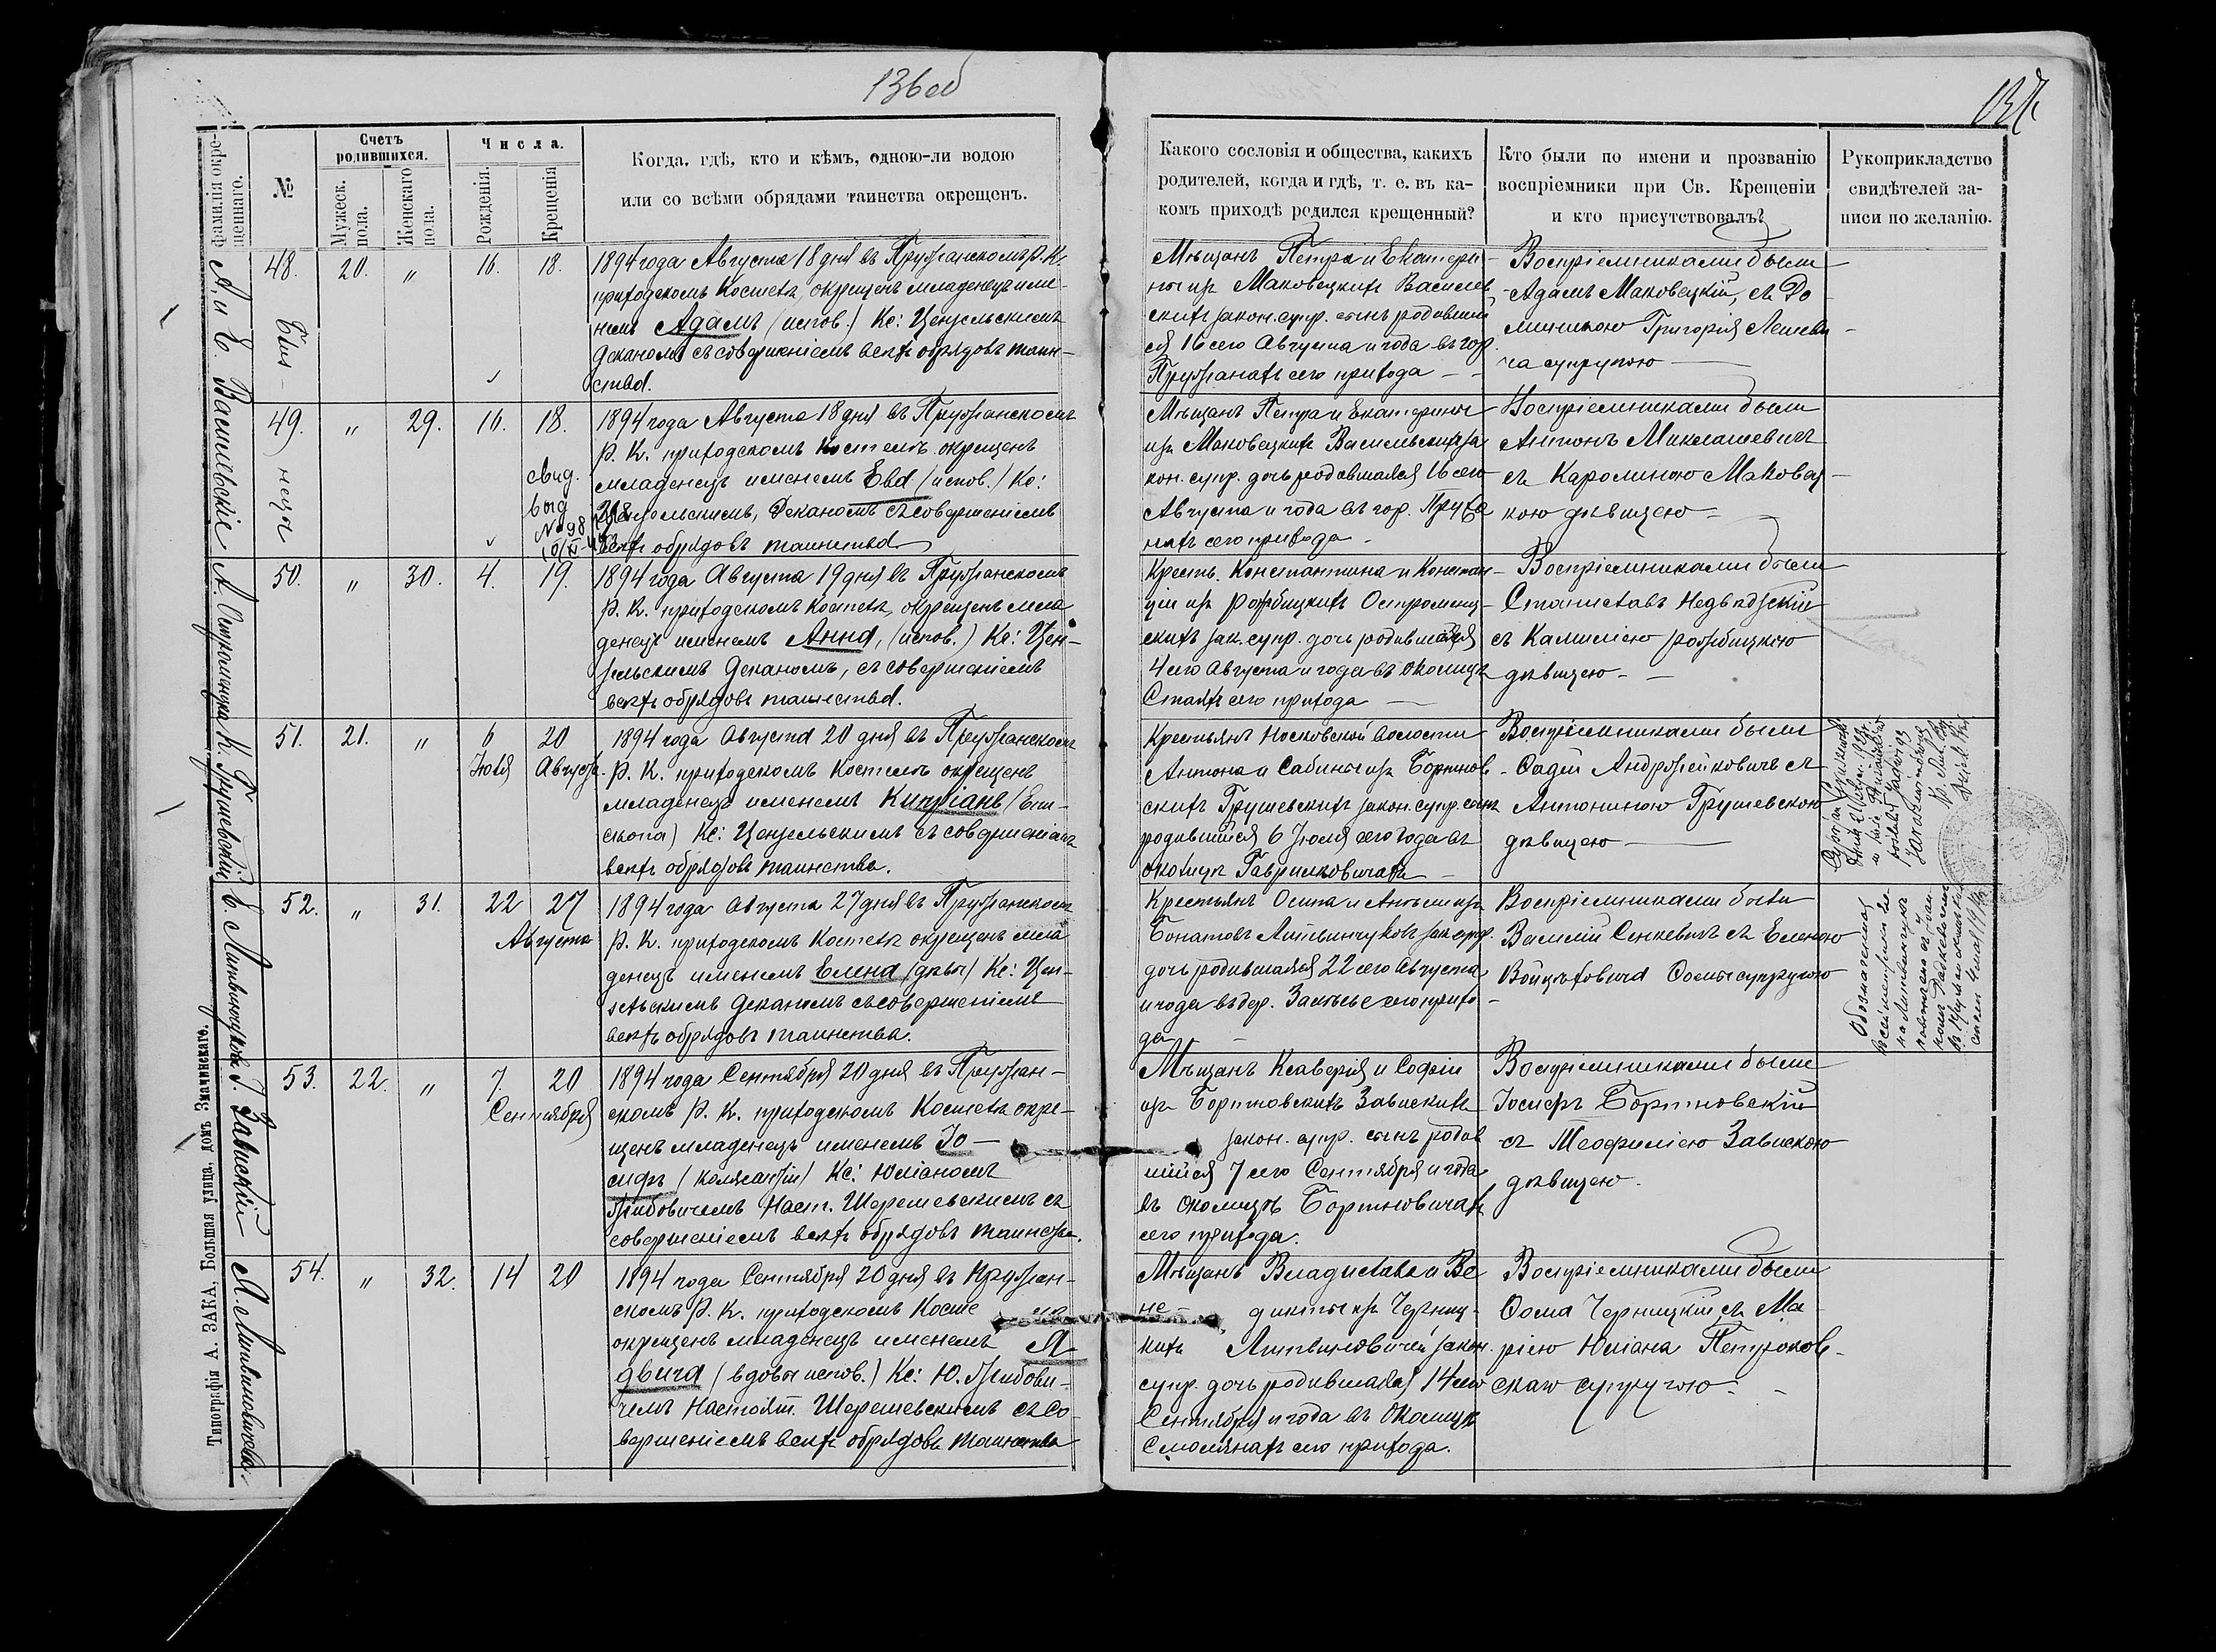 136об
137
фамилія окре-
щеннаго.
№
Счетъ
родившихся.
Мужеск.
пола.
Женскаго
пола.
Числа.
Рожденія.
Крещенія
Когда, гдѣ, кто и кѣмъ, одною-ли водою
или со всѣми обрядами таинства окрещенъ.
Какого сословія и общества, какихъ
родителей, когда и гдѣ, т. е. въ ка-
комъ приходѣ родился крещенный?
Кто были по имени и прозванію
воспріемники при Св. Крещеніи
и кто присутствовалъ?
Рукоприкладство
свидѣтелей за-
писи по желанію.
А. и Е. Васильскіе
48.
20.
"
16.
18.
1894 года Августа 18 дня въ Пружанскомъ Р. К.
приходскомъ Костелѣ, окрещенъ младенецъ име-
немъ Адамъ (испов.) Кс: Цензельскимъ
Деканомъ съ совершеніемъ всѣхъ обрядовъ таин-
ства.
Мѣщанъ Петра и Екатери-
ны изъ Маковецкихъ Василев-
скихъ закон. супр. сынъ родивший
ся 16 сего Августа и года въ гор.
Пружанахъ сего прихода
Воспріемниками были
Адамъ Маковецкій, съ До-
миникою Григорія Лешеви-
ча супругою
49.
"
29.
16.
18.
свид.
выд
№ 98
1894 года Августа 18 дня въ Пружанскомъ
Р. К. приходскомъ Костелѣ окрещенъ
младенецъ именемъ Ева (испов.) Кс:
Цензельскимъ, Деканомъ съ совершеніемъ
всѣхъ обрядовъ таинства
Мѣщанъ Петра и Екатерины
изъ Маковецкихъ Васильскихъ за
кон. супр. дочь родившаяся 16 сего
Августа и года въ гор. Пружа
нахъ сего прихода
Воспріемниками были
Антонъ Миклашевичъ
съ Каролиною Маковец-
кою дѣвицею
А. Остроменцка
50.
"
30.
4.
19.
1894 года Августа 19 дня въ Пружанскомъ
Р. К. приходскомъ Костелѣ, окрещенъ мла
денецъ именемъ Анна, (испов.) Кс: Цен-
зельскимъ Деканомъ, съ совершеніемъ
всѣхъ обрядовъ таинства.
Кресть. Константина и Констан-
ціи изъ Рожбицкихъ Остроменц-
скихъ зак. супр. дочь родившаяся
4 сего Августа и года въ околицѣ
Стаяхъ сего прихода
Воспріемниками были
Станиславъ Недзвѣдзкій
съ Камиліею Рожбицкою
дѣвицею
К. Грушевскій
51.
21.
"
6
Іюля
20
Августа.
1894 года Августа 20 дня въ Пружанскомъ
Р. К. приходскомъ Костелѣ окрещенъ
младенецъ именемъ Кипріанъ (Епи-
скопа) Кс: Цензельскимъ съ совершеніемъ
всѣхъ обрядовъ таинства.
Крестьянъ Носковской волости
Антона и Сабины изъ Бортнов-
скихъ Грушевскихъ закон. супр. сынъ
родившийся 6 Іюля сего года въ
околицѣ Гаврилковичахъ
Воспріемниками были
Фадей Андржейковичъ съ
Антониною Грушевскою
дѣвицею
Е. Литвинчукова
52.
"
31.
22
27
Августа
1894 года Августа 27 дня въ Пружанскомъ
Р. К. приходскомъ Костелѣ окрещенъ мла
денецъ именемъ Елена (дѣвы) Кс: Цен-
зельскимъ Деканомъ съ совершеніемъ
всѣхъ обрядовъ таинства.
Крестьянъ Осипа и Анѣли изъ
Бонатовъ Литвинчуковъ зак. супр.
дочь родившаяся 22 сего Августа
и года въ дер. Залѣсье сего прихо-
да
Воспріемниками были
Василій Сенкевичъ съ Еленою
Войцѣховича Фомы супругою
І. Завискій
53.
22.
"
7.
20
Сентября
1894 года Сентября 20 дня въ Пружан-
скомъ Р. К. приходскомъ Костелѣ окре-
щенъ младенецъ именемъ Іо-
сифъ (Колясанзія) Кс: Юліаномъ
Грибовичемъ Наст. Шерешевскимъ съ
совершеніемъ всѣхъ обрядовъ таинства.
Мѣщанъ Ксаверія и Софіи
изъ Бортновскихъ Завискихъ
закон. супр. сынъ родив
шийся 7 сего Сентября и года
въ околицѣ Бортновичахъ
сего прихода.
Воспріемниками были
Іосифъ Бортновскій
съ Теофиліею Завискою
дѣвицею.
Я. Литвиновичова
54.
"
32.
14
20
1894 года Сентября 20 дня въ Пружан-
скомъ Р. К. приходскомъ Косте лѣ
окрещенъ младенецъ именемъ Я
двига (вдовы испов.) Кс: Ю. Грибови-
чемъ Настоят. Шерешевскимъ съ со-
вершеніемъ всѣхъ обрядовъ таинства
Мѣщанъ Владислава и Бе
не- дикты изъ Черниц-
кихъ Литвиновичей закон.
супр. дочь родившаяся 14 сего
Сентября и года въ околицѣ
Смолянахъ сего прихода.
Воспріемниками были
Фома Черницкій съ Ма-
ріею Юліана Петуховс-
каго супругою
Типографія А. ЗАКА, Большая улица, домъ Змачинскаго.